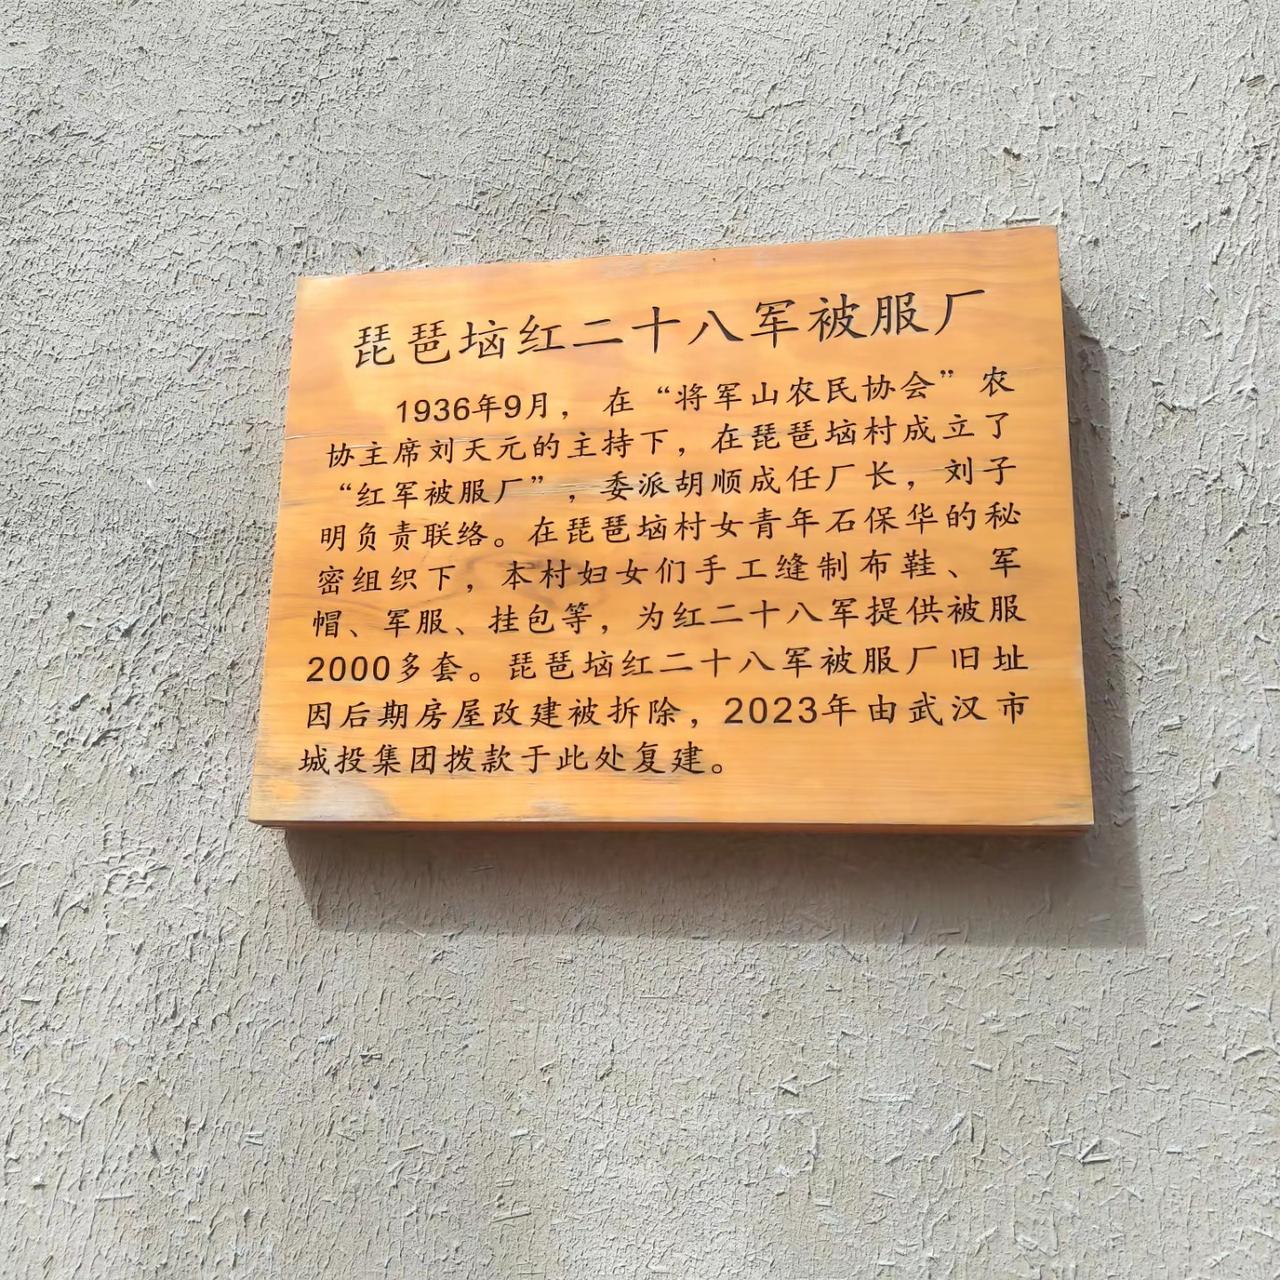 琵琶垴红二十八军被服厂
1936年9月，在“将军山农民协会”农
协主席刘天元的主持下，在琵琶垴村成立了
“红军被服厂”，委派胡顺成任厂长，刘子
明负责联络。在琵琶垴村女青年石保华的秘
密组织下，本村妇女们手工缝制布鞋、军
帽、军服、挂包等，为红二十八军提供被服
2000多套。琵琶垴红二十八军被服厂旧址
因后期房屋改建被拆除，2023年由武汉市
城投集团拨款于此处复建。